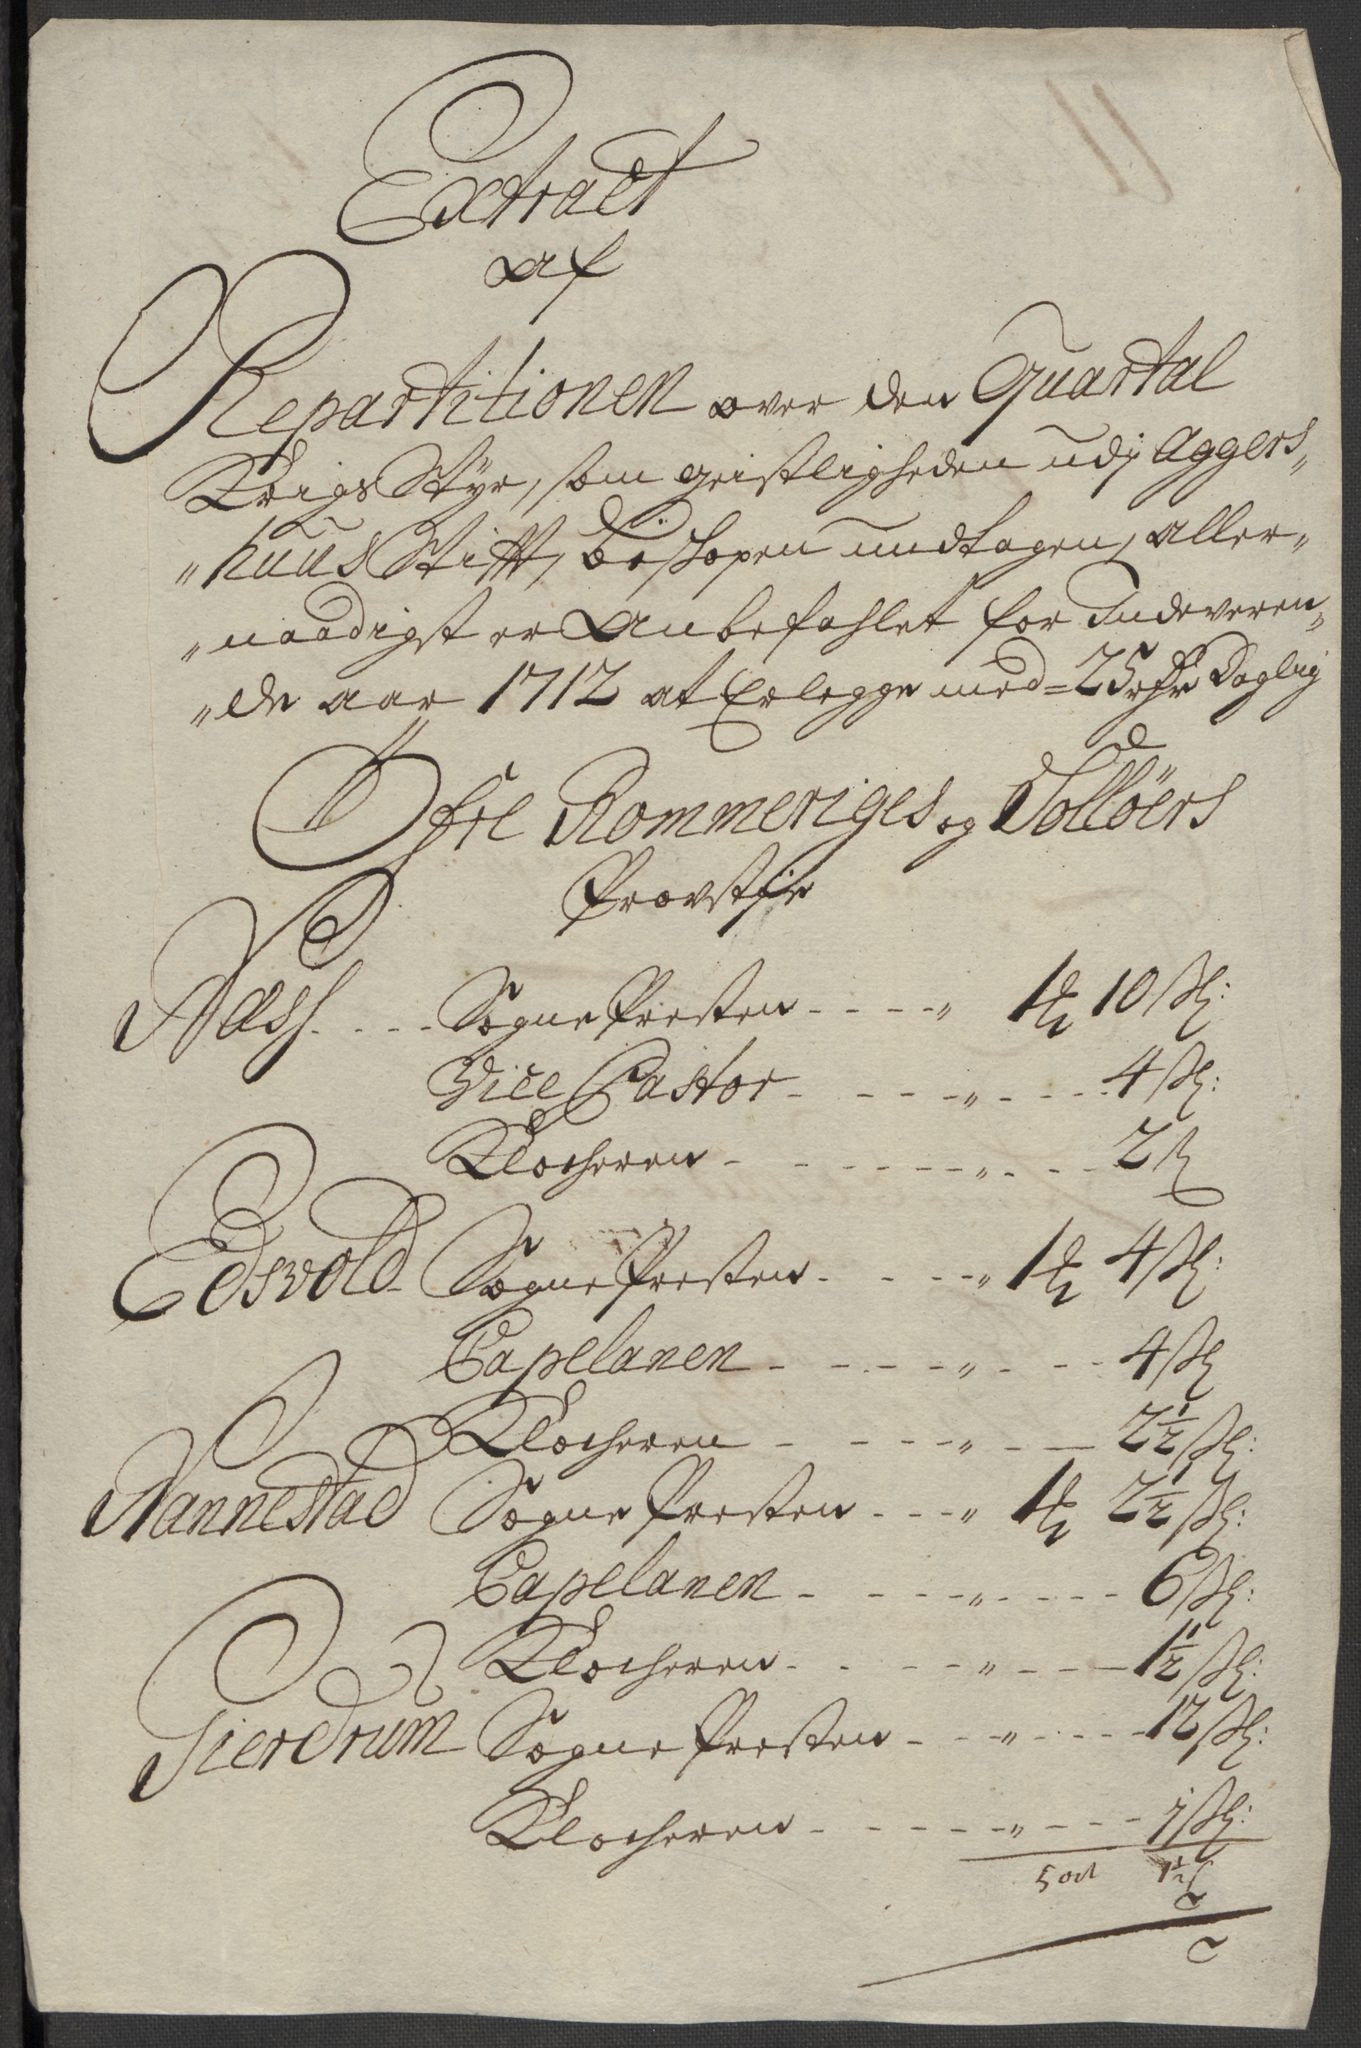 Extract
af
Repartitionen over den Quartal
KrigsStÿr, som geistligheden udj Aggers„
„huus Stifft, bischopen undtagen, aller„
„naadigst er Anbefahlet for Indeveren„
„de aar 1712 at Erlegge med = 25 Daglig
Øfre Rommeriges og Solløers
Provstie
Næss SognePresten " 1 10 sk:
Vice Pastor " 4 sk:
Klocheren " 2 sk
Edsvold SognePresten " 1 4 sk:
Capelanen " 4 sk
Klocheren " 2½ sk:
Nannestad SognePresten " 1 2½ sk:
Capelanen " 6 sk:
Klocheren " 1½ sk:
Gierdrum SognePresten " 12 sk:
Klocheren " 1 sk:
5 ort 1½ s